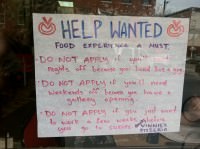 HELP WANTED
FOOD EXPERIENCE A MUST.
• DO NOT APPLY if you'll need
nights off because you have a gig.
• DO NOT APPLY if you'll need
weekends off because you have a
gallery opening.
• DO NOT APPLY if you just want
to work a few weeks before
you go to
VINNIE'S
PIZZERIA